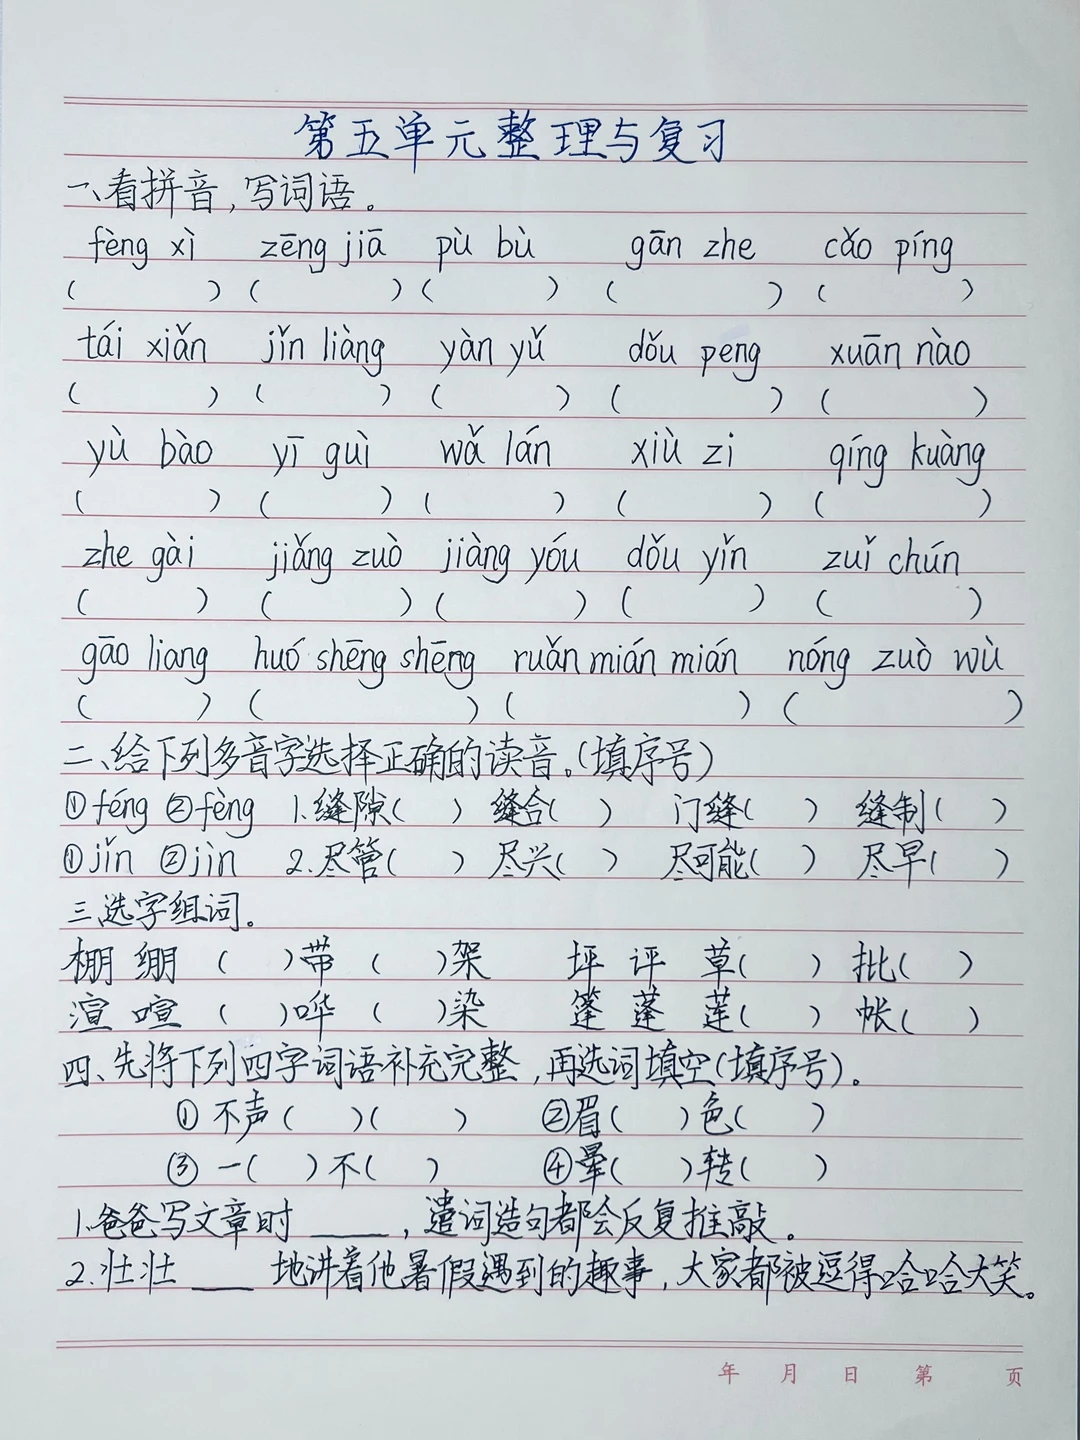 第五单元整理与复习
一、看拼音,写词语。
fèng xì zēng jiā pù bù gān zhe cǎo píng
( ) ( ) ( ) ( ) ( )
tái xiǎn jǐn liàng yàn yǔ dǒu peng xuān nào
( ) ( ) ( ) ( ) ( )
yù bào yī guì wǎ lán xiù zi qíng kuàng
( ) ( ) ( ) ( ) ( )
zhe gài jiǎng zuò jiàng yóu dǒu yǐn zuǐ chún
( ) ( ) ( ) ( ) ( )
gāo liang huó shēng shēng ruǎn mián mián nóng zuò wù
( ) ( ) ( ) ( )
二、给下列多音字选择正确的读音。(填序号)
①féng ②fèng 1.缝隙( ) 缝合( ) 门缝( ) 缝制( )
①jǐn ②jìn 2.尽管( ) 尽兴( ) 尽可能( ) 尽早( )
三、选字组词。
棚 绷 ( )带 ( )架 坪 评 草( ) 批( )
渲 喧 ( )哗 ( )染 篷 蓬 莲( ) 帐( )
四、先将下列四字词语补充完整,再选词填空(填序号)。
① 不声( )( ) ②眉( )色( )
③ 一( )不( ) ④晕( )转( )
1.爸爸写文章时____,遣词造句都会反复推敲。
2.壮壮____地讲着他暑假遇到的趣事,大家都被逗得哈哈大笑。
年 月 日 第 页